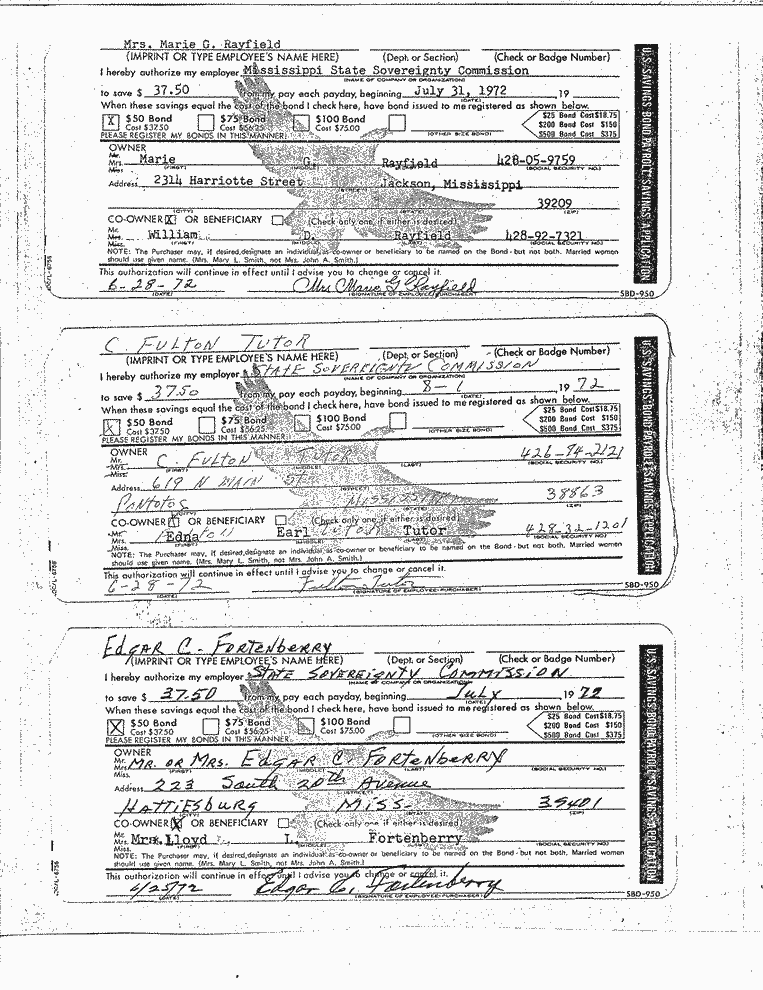 Mrs. Marie G. Rayfield
(IMPRINT OR TYPE EMPLOYEE'S NAME HERE) (Dept. or Section) (Check or Badge Number)
I hereby authorize my employer Mississippi State Sovereignty Commission
(NAME OF COMPANY OR ORGANIZATION)
to save $ 37.50 from my pay each payday, beginning July 31, 1972, 19
(DATE)
When these savings equal the cost of the bond I check here, have bond issued to me registered as shown below.
X $50 Bond Cost $37.50 $75 Bond Cost $56.25 $100 Bond Cost $75.00 (OTHER SIZE BOND) $25 Bond Cost $18.75
$200 Bond Cost $150
$500 Bond Cost $375
PLEASE REGISTER MY BONDS IN THIS MANNER:
OWNER
Mr. Mrs. Miss Marie G. Rayfield 428-05-9759
(FIRST) (MIDDLE) (LAST) (SOCIAL SECURITY NO.)
Address 2314 Harriotte Street Jackson, Mississippi
(STREET)
39209
(CITY) (STATE) (ZIP)
CO-OWNER X OR BENEFICIARY (Check only one, if either is desired)
Mr. Mrs. Miss. William D. Rayfield 428-92-7321
(FIRST) (MIDDLE) (LAST) (SOCIAL SECURITY NO.)
NOTE: The Purchaser may, if desired, designate an individual as co-owner or beneficiary to be named on the Bond - but not both. Married women
should use given name. (Mrs. Mary L. Smith, not Mrs. John A. Smith.)
This authorization will continue in effect until I advise you to change or cancel it.
6-28-72 Mrs Marie G Rayfield
(DATE) (SIGNATURE OF EMPLOYEE-PURCHASER) SBD-950
U.S. SAVINGS BOND PAYROLL SAVINGS APPLICATION
C. FULTON TUTOR
(IMPRINT OR TYPE EMPLOYEE'S NAME HERE) (Dept. or Section) (Check or Badge Number)
I hereby authorize my employer STATE SOVEREIGNTY COMMISSION
(NAME OF COMPANY OR ORGANIZATION)
to save $ 37.50 from my pay each payday, beginning 8-1 19 72
(DATE)
When these savings equal the cost of the bond I check here, have bond issued to me registered as shown below.
X $50 Bond Cost $37.50 $75 Bond Cost $56.25 $100 Bond Cost $75.00 (OTHER SIZE BOND) $25 Bond Cost $18.75
$200 Bond Cost $150
$500 Bond Cost $375
PLEASE REGISTER MY BONDS IN THIS MANNER:
OWNER
Mr. Mrs. Miss. C. FULTON TUTOR 426-94-2121
(FIRST) (MIDDLE) (LAST) (SOCIAL SECURITY NO.)
Address 619 N MAIN ST
(STREET)
PONTOTOC MISSISSIPPI 38863
(CITY) (STATE) (ZIP)
CO-OWNER OR BENEFICIARY (Check only one, if either is desired)
Mr. Mrs. Miss. Edna Earl Tutor 428-32-1201
(FIRST) (MIDDLE) (LAST) (SOCIAL SECURITY NO.)
NOTE: The Purchaser may, if desired, designate an individual as co-owner or beneficiary to be named on the Bond - but not both. Married women
should use given name. (Mrs. Mary L. Smith, not Mrs. John A. Smith.)
This authorization will continue in effect until I advise you to change or cancel it.
6-28-72 Fulton Tutor
(DATE) (SIGNATURE OF EMPLOYEE-PURCHASER) SBD-950
U.S. SAVINGS BOND PAYROLL SAVINGS APPLICATION
EDGAR C. FORTENBERRY
(IMPRINT OR TYPE EMPLOYEE'S NAME HERE) (Dept. or Section) (Check or Badge Number)
I hereby authorize my employer STATE SOVEREIGNTY COMMISSION
(NAME OF COMPANY OR ORGANIZATION)
to save $ 37.50 from my pay each payday, beginning July 19 72
(DATE)
When these savings equal the cost of the bond I check here, have bond issued to me registered as shown below.
X $50 Bond Cost $37.50 $75 Bond Cost $56.25 $100 Bond Cost $75.00 (OTHER SIZE BOND) $25 Bond Cost $18.75
$200 Bond Cost $150
$500 Bond Cost $375
PLEASE REGISTER MY BONDS IN THIS MANNER:
OWNER
Mr. Mrs. Miss. MR. OR MRS. EDGAR C. FORTENBERRY
(FIRST) (MIDDLE) (LAST) (SOCIAL SECURITY NO.)
Address 223 South 20th Avenue
(STREET)
HATTIESBURG MISS- 39401
(CITY) (STATE) (ZIP)
CO-OWNER X OR BENEFICIARY (Check only one, if either is desired)
Mr. Mrs. Miss. Mrs. Lloyd L. Fortenberry
(FIRST) (MIDDLE) (LAST) (SOCIAL SECURITY NO.)
NOTE: The Purchaser may, if desired, designate an individual as co-owner or beneficiary to be named on the Bond - but not both. Married women
should use given name. (Mrs. Mary L. Smith, not Mrs. John A. Smith.)
This authorization will continue in effect until I advise you to change or cancel it.
6/25/72 Edgar C. Fortenberry
(DATE) (SIGNATURE OF EMPLOYEE-PURCHASER) SBD-950
U.S. SAVINGS BOND PAYROLL SAVINGS APPLICATION